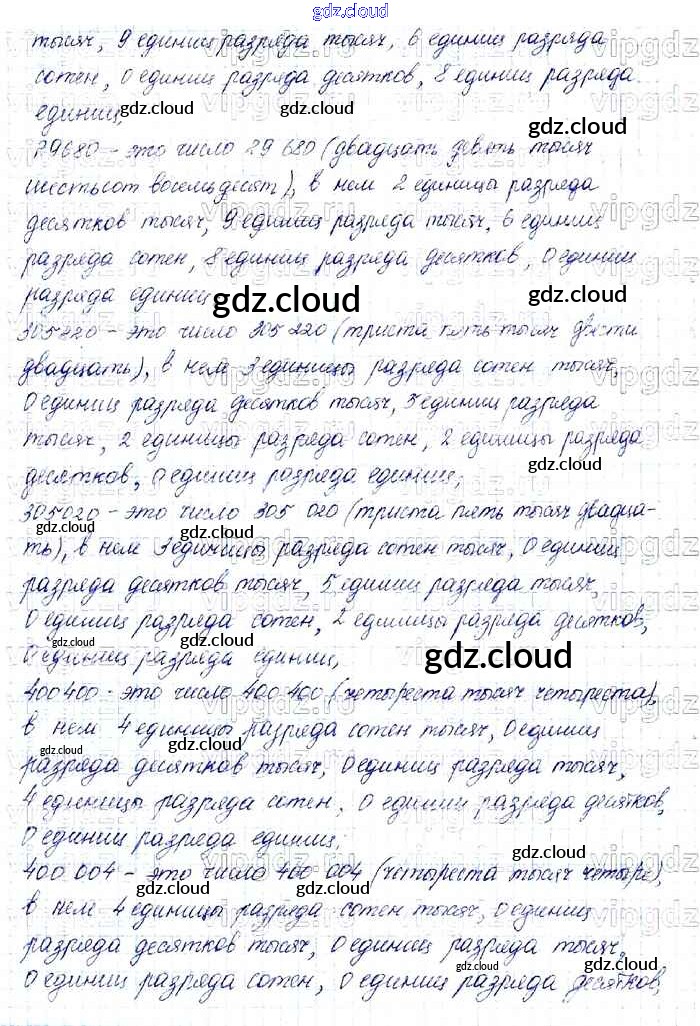 gdz.cloud
тысяч, 9 единиц разряда тысяч, 6 единиц разряда
сотен, 0 единиц разряда десятков, 8 единиц разряда
единиц;
29680 – это число 29 680 (двадцать девять тысяч
шестьсот восемьдесят), в нем 2 единицы разряда
десятков тысяч, 9 единиц разряда тысяч, 6 единиц
разряда сотен, 8 единиц разряда десятков, 0 единиц
разряда единиц
305220 – это число 305 220 (триста пять тысяч двести
двадцать), в нем 3 единицы разряда сотен тысяч,
0 единиц разряда десятков тысяч, 5 единиц разряда
тысяч, 2 единицы разряда сотен, 2 единицы разряда
десятков, 0 единиц разряда единиц;
305020 – это число 305 020 (триста пять тысяч двадца-
ть), в нем 3 единицы разряда сотен тысяч, 0 единиц
разряда десятков тысяч, 5 единиц разряда тысяч,
0 единиц разряда сотен, 2 единицы разряда десятков,
0 единиц разряда единиц;
400400 – это число 400 400 (четыреста тысяч четыреста),
в нем 4 единицы разряда сотен тысяч, 0 единиц
разряда десятков тысяч, 0 единиц разряда тысяч,
4 единицы разряда сотен, 0 единиц разряда десятков,
0 единиц разряда единиц;
400 004 – это число 400 004 (четыреста тысяч четыре),
в нем 4 единицы разряда сотен тысяч, 0 единиц
разряда десятков тысяч, 0 единиц разряда тысяч,
0 единиц разряда сотен, 0 единиц разряда десятков,